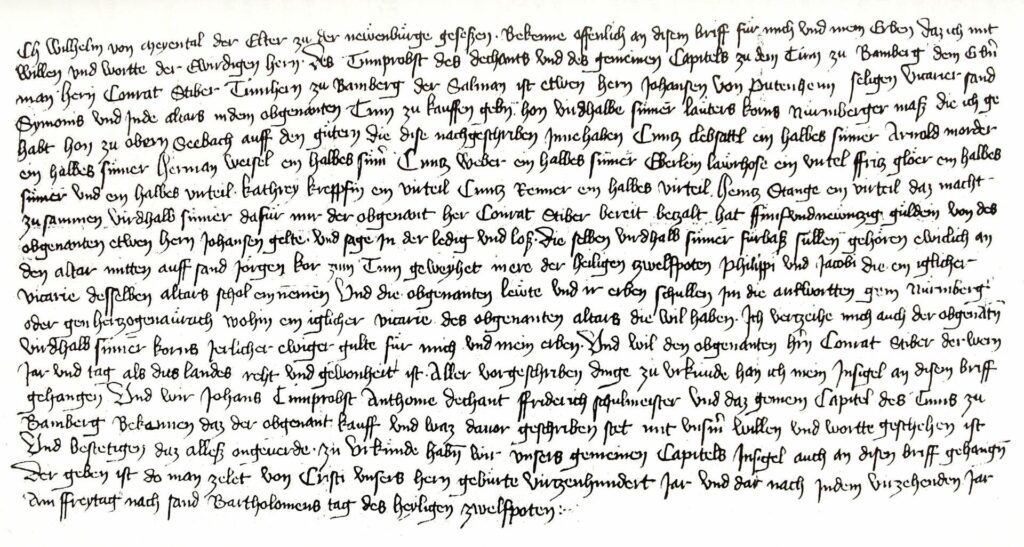 Ich Wilhelm von Meyental der Elter zu der newenbürge geseßen. Bekenne offenlich an disem briff für mich und mein Erben daz ich mit
Willen und wortte der Erwirdigen hern. Des Tumprobst des dechants und des gemeinen Capitels zu dem Tum zu Bamberg dem Erbern
man hern Conrat Stiber Tumhern zu Bamberg der Salman ist etwen hern Johansen von Putenheim seligen vicarier sand
Symonis und Jude altars in dem obgenanten Tum zu kauffen gebn hon virdhalbe sümer lauters korns Nurmberger maß die ich ge
habt hon zu obern Seebach auff den gütern die dise nachgeschriben Innehaben Cuntz clebsattl ein halbes sümer Arnold morder
ein halbes sümer herman weisel ein halbes süm Cuntz weber ein halbes sümer Eberlein laurhose ein virtel ffricz glöer ein halbes
sümer und ein halbes virteil. kathrey kreppfin ein virteil Cuntz Renner ein halbes virteil. heintz Stange ein virteil daz macht
zu sammen virdhalb sümer dafür mir der obgenant her Conrat Stiber bereit betzalt hat ffümfundnewntzig guldein von des
obgenanten etwen hern Johansen gelte. und sage In der ledig und loß. die selben virdhalb sümer fürbaß süllen gehören ewiclich an
den altar mitten auff sand Jörgen kor zum Tum geweyhet in ere der heiligen zwelfpoten Philippi und Jacobi die ein iglicher
vicarie desselben altars schol einnemen Und die obgenanten lewte und ir erben schullen Im die antwortten gein Nurmberg
oder gen herzogenaurach wohin ein iglicher vicarie des obgenanten altars die wil haben. Ich verzeihe mich auch der obgenantn
virdhalb sümer korns Jerlicher ewiger gulte für mich und mein erben. Und wil den obgenanten hrn Conrat Stiber der wern
Jar und tag als dus landes reht und gewonheit ist. Aller vorgeschriben dinge zu urkunde han ich mein Insigel an disem briff
gehangen Und wir Johans Tumprobst Anthonie dechant ffriderich schulmeister und daz gemein Capitel des Tums zu
Bamberg Bekennen daz der obgenant kauff und waz davor geschriben stet mit unserm willen und wortte geschehen ist
Und bestetigen daz alleß ongeverde. zu urkunde habn wir unsers gemeinen Capitels Insigel auch an disen briff gehangn
Der geben ist do man zelet von Cristi unsers hern gebürte virtzenhundert Jar und dar nach Indem virzehenden Jar
Am ffreytag nach sand Bartholomeus tag des heyligen zwelfpoten :·